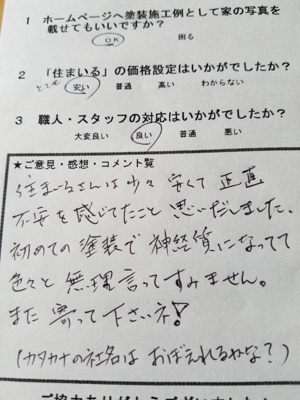 1 ホームページへ塗装施工例として家の写真を
載せてもいいですか?
OK 困る
2 「住まいる」の価格設定はいかがでしたか?
とても 安い 普通 高い わからない
3 職人・スタッフの対応はいかがでしたか?
大変良い 良い 普通 悪い
★ご意見・感想・コメント覧
住まーるさんは少々安くて正直
不安を感じてたこと思いだしました。
初めての塗装で神経質になってて
色々と無理言ってすみません。
また寄って下さいネ!
(カタカナの社名はおぼえれるかな?)
ご協力ありがとうございました!